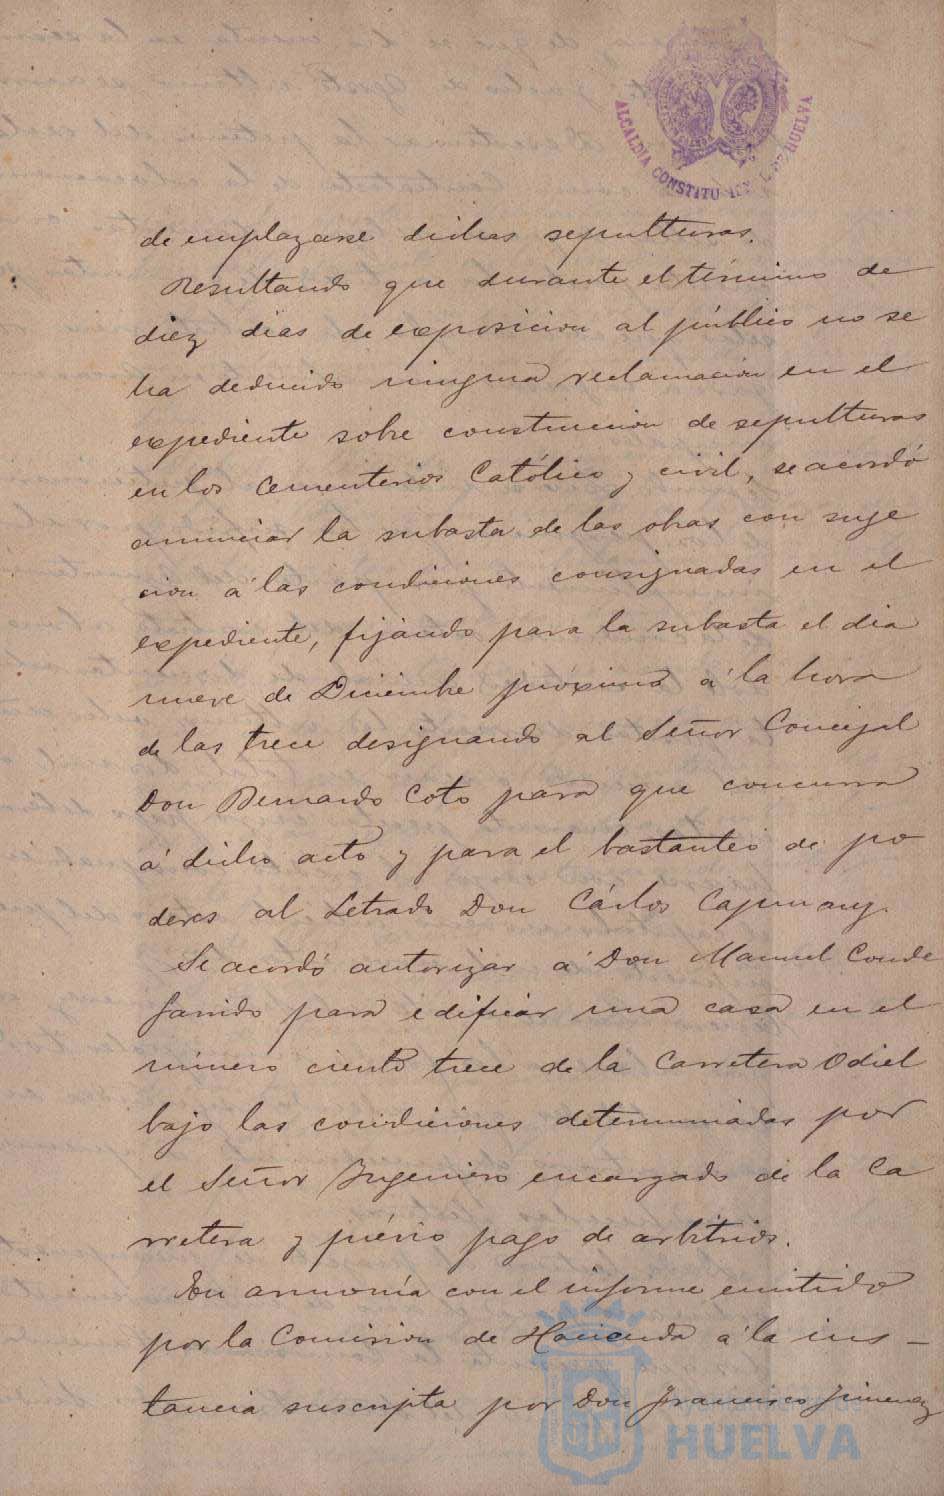 ALCALDIA CONSTITUCIONAL DE HUELVA
de emplazarse dichas sepulturas.
Resultando que durante el término de
diez dias de exposicion al público no se
ha deducido ninguna reclamacion en el
expediente sobre construccion de sepulturas
en los Cementerios Católico y civil, se acordó
anunciar la subasta de las obras con suje
cion á las condiciones consignadas en el
expediente, fijando para la subasta el dia
nueve de Diciembre próximo á la hora
de las trece designando al Señor Concejal
Don Bernardo Coto para que concurra
á dicho acto y para el bastanteo de po
deres al Letrado Don Cárlos Capmany.
Se acordó autorizar á Don Manuel Conde
Garrido para edificar una casa en el
número ciento trece de la Carretera Odiel
bajo las condiciones determinadas por
el Señor Ingeniero encargado de la Ca
rretera y prévio pago de arbitrios.
En armonía con el informe emitido
por la Comision de Hacienda á la ins-
tancia suscripta por Don Francisco Jimenez
HUELVA